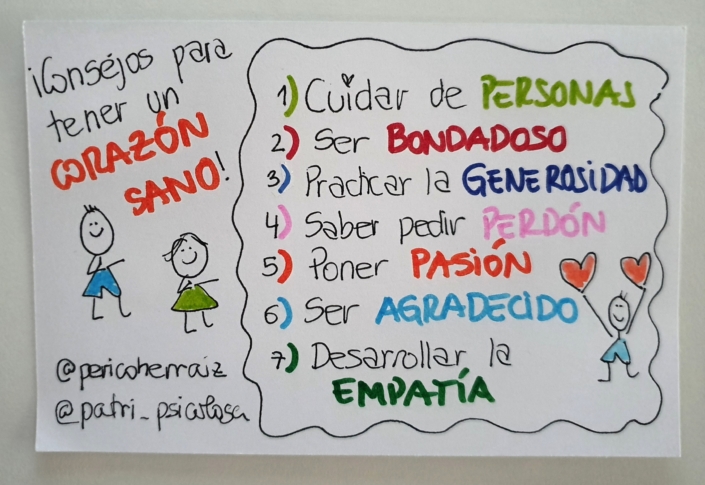 ¡Consejos para
tener un
CORAZÓN
SANO!
1) Cuidar de PERSONAS
2) Ser BONDADOSO
3) Practicar la GENEROSIDAD
4) Saber pedir PERDÓN
5) Poner PASIÓN
6) Ser AGRADECIDO
7) Desarrollar la
EMPATÍA
@pericoherraiz
@patri_psicologa